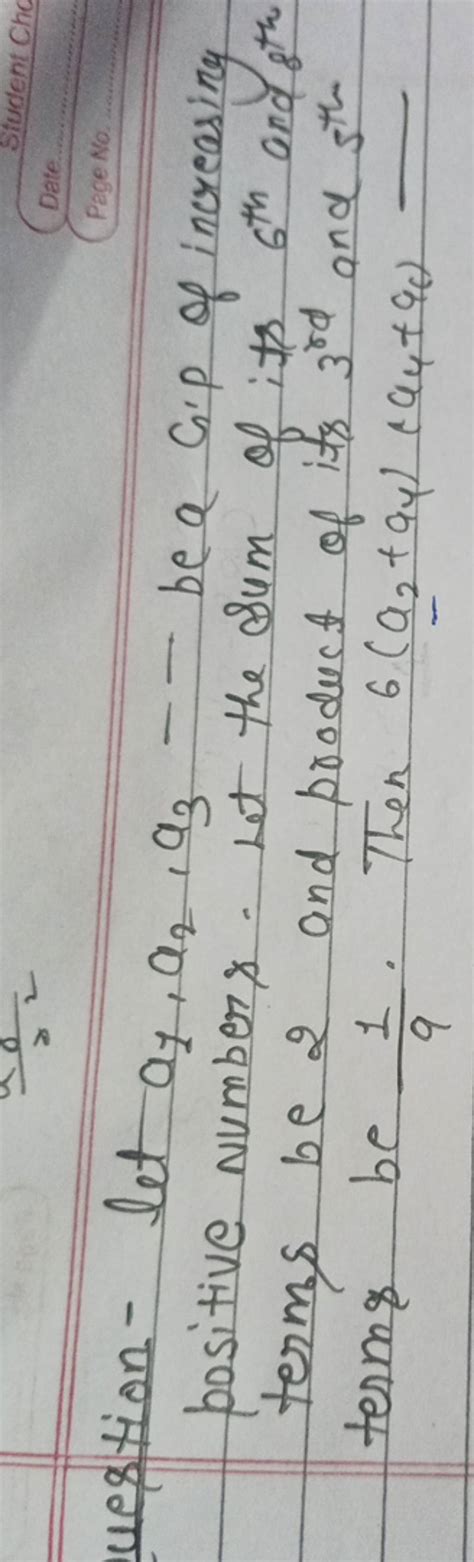 Student Cho
Date
Page No.
uestion - let a1, a2, a3 --- be a G.P of increasing
positive numbers. Let the sum of its 6th and 8th
terms be 2 and product of its 3rd and 5th
terms be 1/9. Then 6(a2+a4)(a4+a6) —